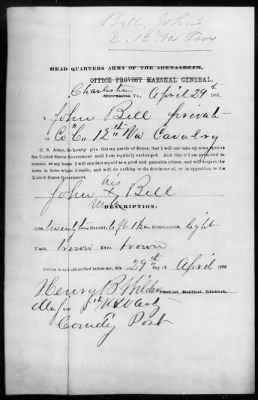 Bell, John
C. 12 Va Cav
HEAD QUARTERS ARMY OF THE SHENANDOAH,
OFFICE PROVOST MARSHAL GENERAL,
Charleston Va., April 29th 186
John Bell private
Co "C" 12th Va Cavalry
C. S. Army, do hereby give my parole of Honor, that I will not take up arms against
the United States Government until I am regularly exchanged. And that if I am permitted to
remain at my home I will conduct myself as a good and peaceable citizen, and will respect the
laws in force where I reside, and will do nothing to the detriment of, or in opposition to the
United States Government.
his
John X Bell
DESCRIPTION:
twenty two left the light
HAIR, brown EYES, brown
this 29th day of April 186
Henry B Wilder PROVOST MARSHAL GENERAL.
Major
Comdg Post